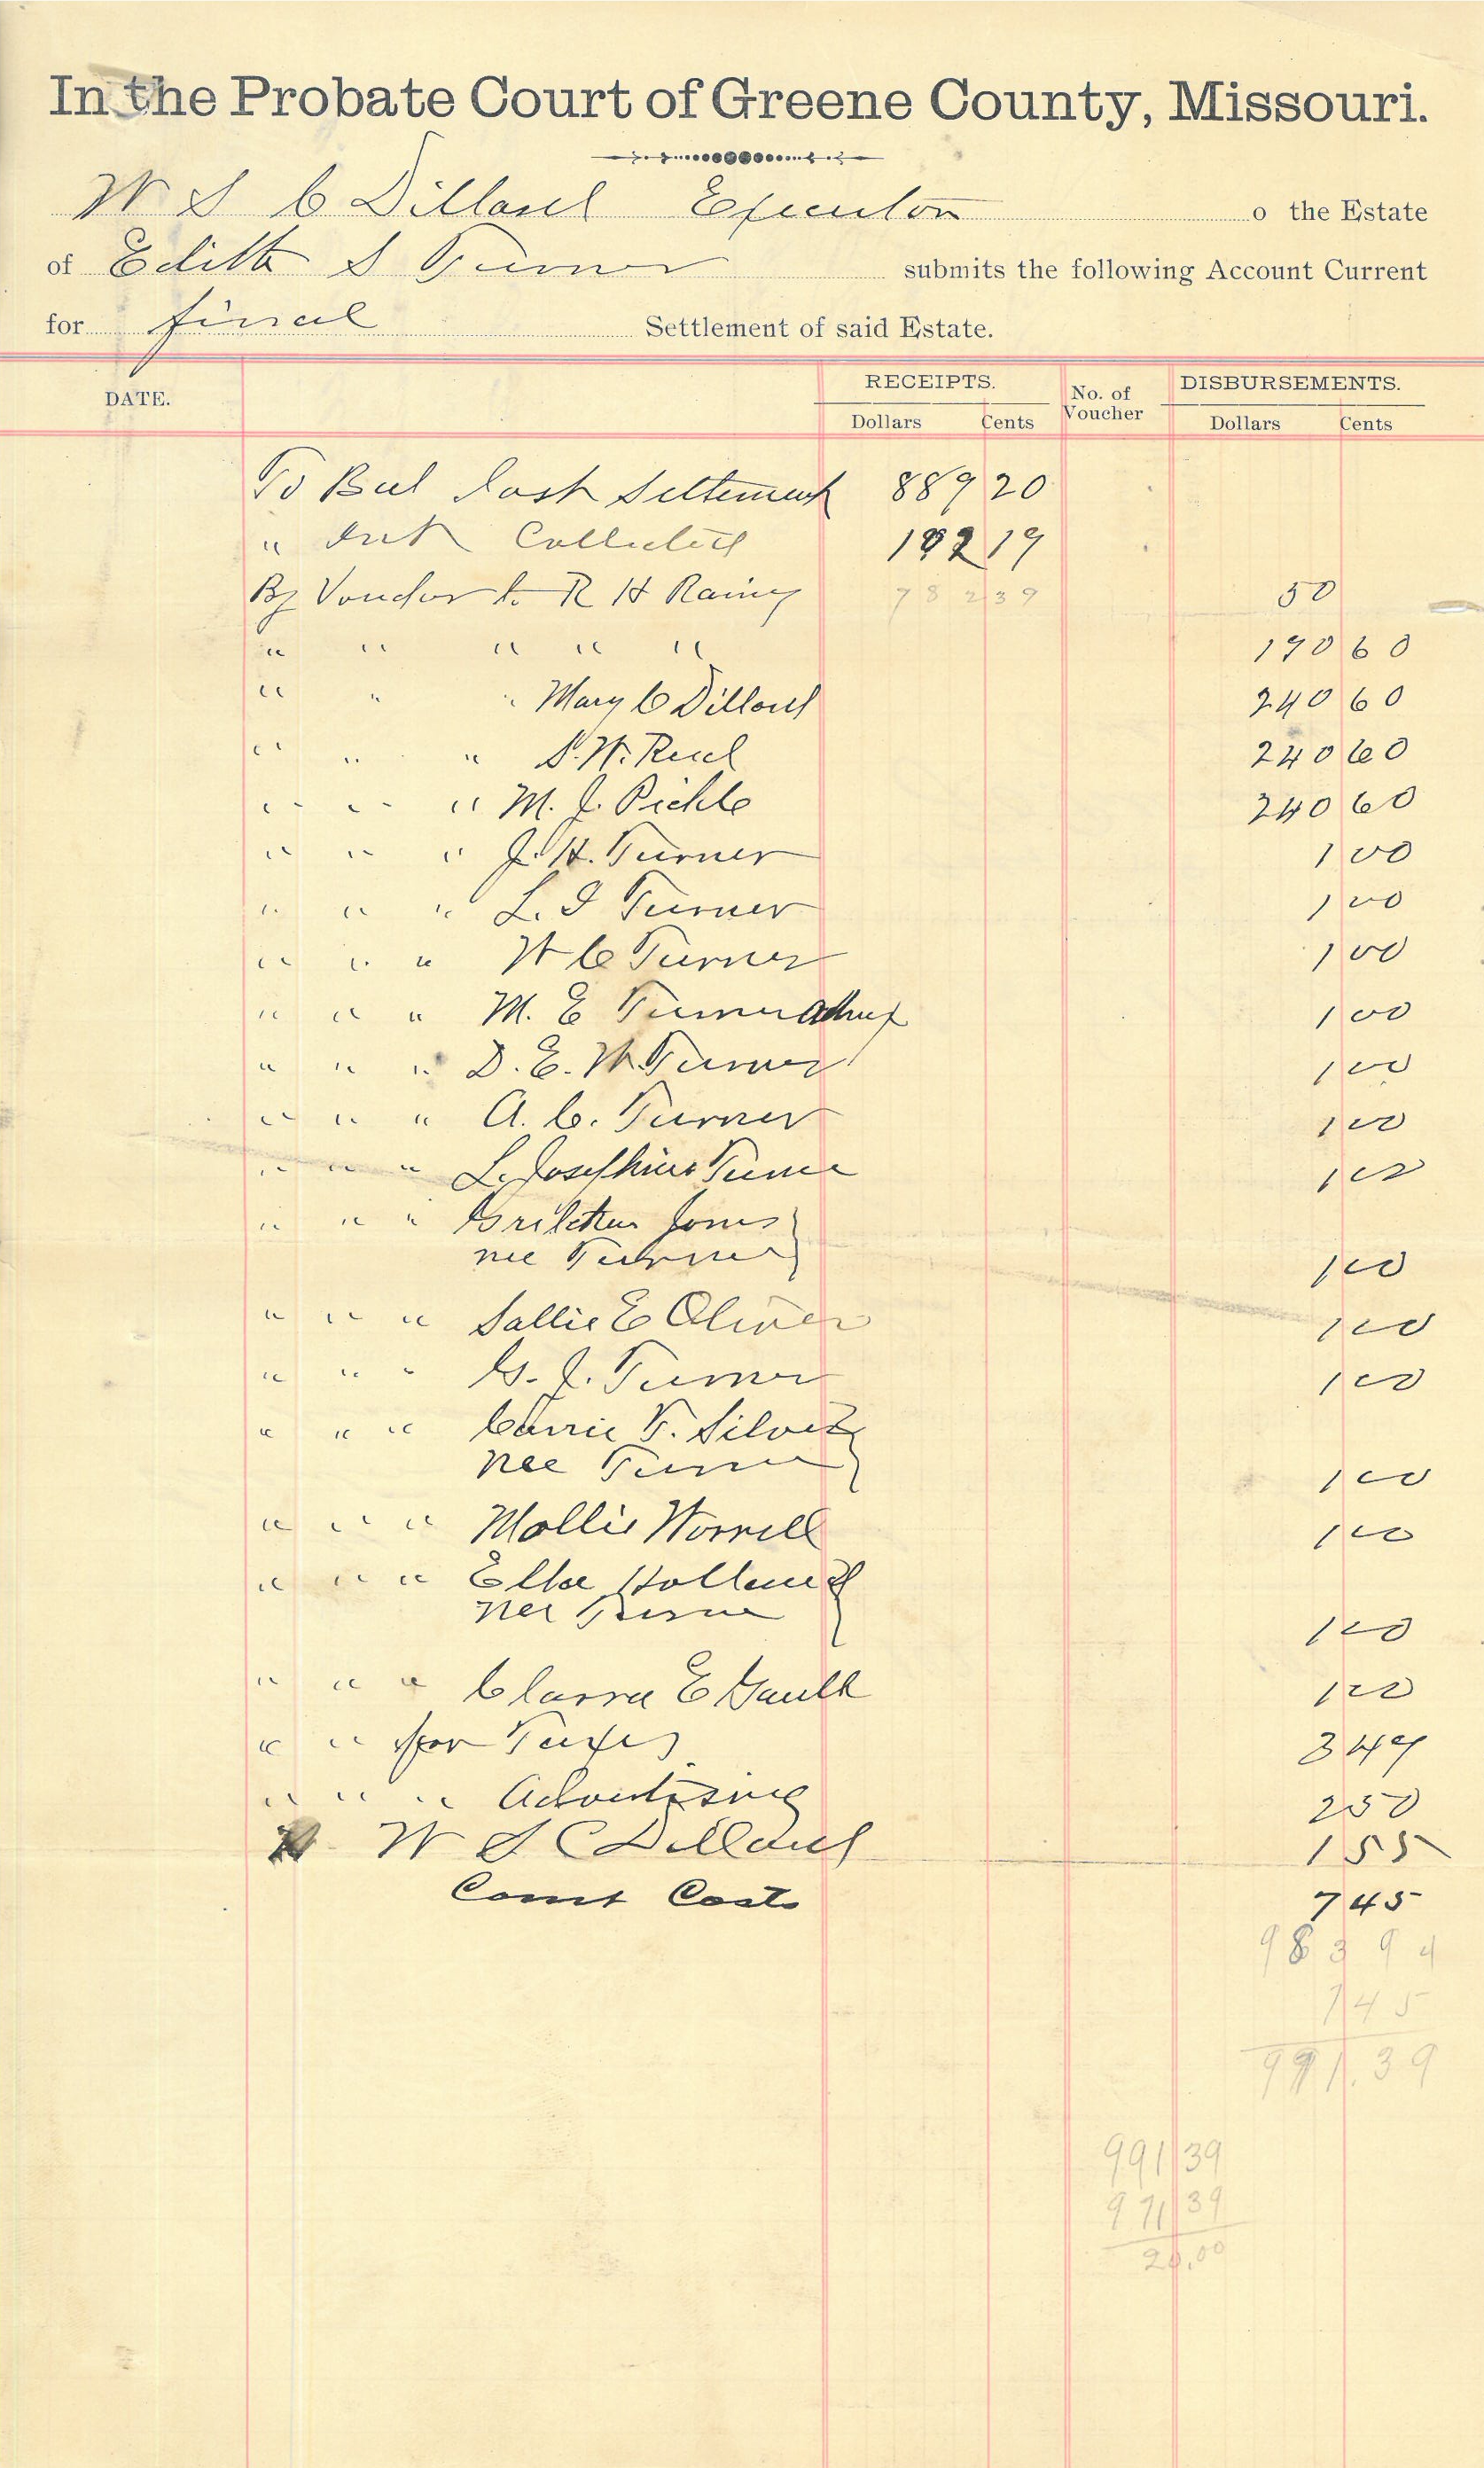 In the Probate Court of Greene County, Missouri.
W S C Dillard Executor o the Estate
of Edith S Turner submits the following Account Current
for final Settlement of said Estate.
DATE. RECEIPTS. No. of Voucher DISBURSEMENTS.
Dollars Cents Dollars Cents
To Bal last settlement 889 20
" Int Collected 102 19
By Voucher to R H Rainey 782 39 50
" " " " " 190 60
" " " Mary C Dillard 240 60
" " " S. W. Reed 240 60
" " " M. J. Pickle 240 60
" " " J. H. Turner 1 00
" " " L. I Turner 1 00
" " " W C Turner 1 00
" " " M. E Turner admx 1 00
" " " D. E. W. Turner 1 00
" " " A. C. Turner 1 00
" " " L. Josephine Turner 1 00
" " " Gretchen Jones
nee Turner 1 00
" " " Sallie E Oliver 1 00
" " " G. J. Turner 1 00
" " " Carrie F. Silver
nee Turner 1 00
" " " Mollie Worrell 1 00
" " " Ella Holland
nee Turner 1 00
" " " Clarra E Gault 1 00
" " for Taxes 3 49
" " " Advertising 2 50
W S C Dillard 1 55
Court Costs 7 45
983 94
7 45
991.39
991 39
971 39
20.00